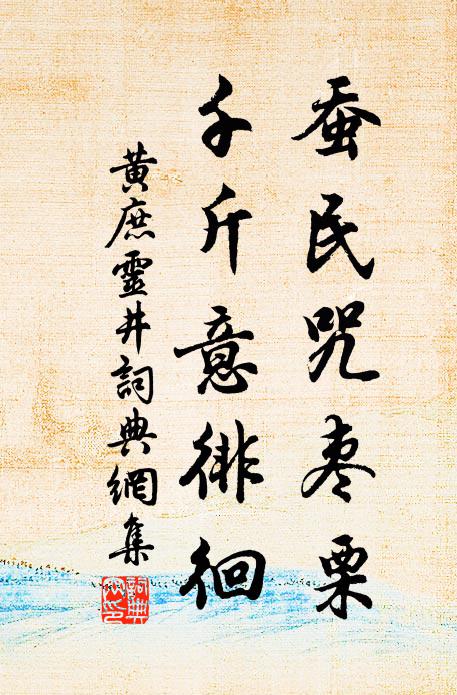 蚕民咒枣栗
千斤意徘徊
黄庶靈井詞典網集